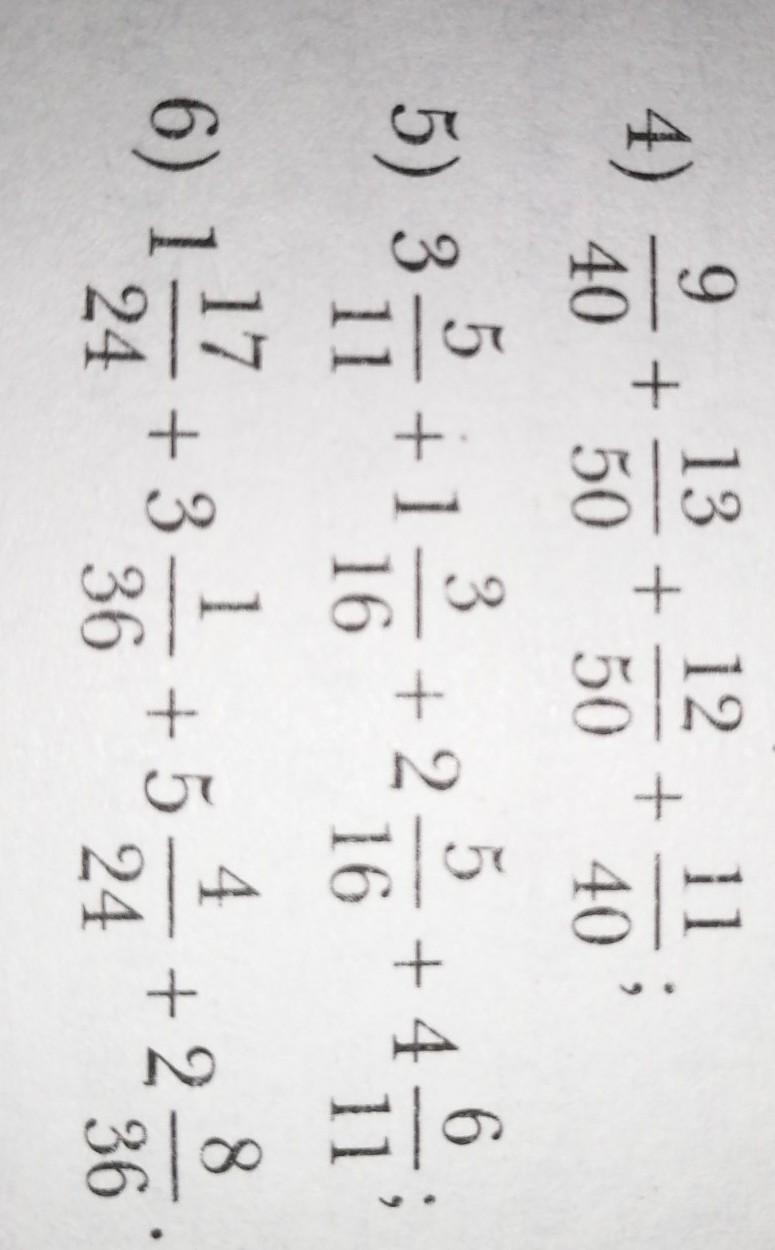 4) 9/40 + 13/50 + 12/50 + 11/40;
5) 3 5/11 + 1 3/16 + 2 5/16 + 4 6/11;
6) 1 17/24 + 3 1/36 + 5 4/24 + 2 8/36.